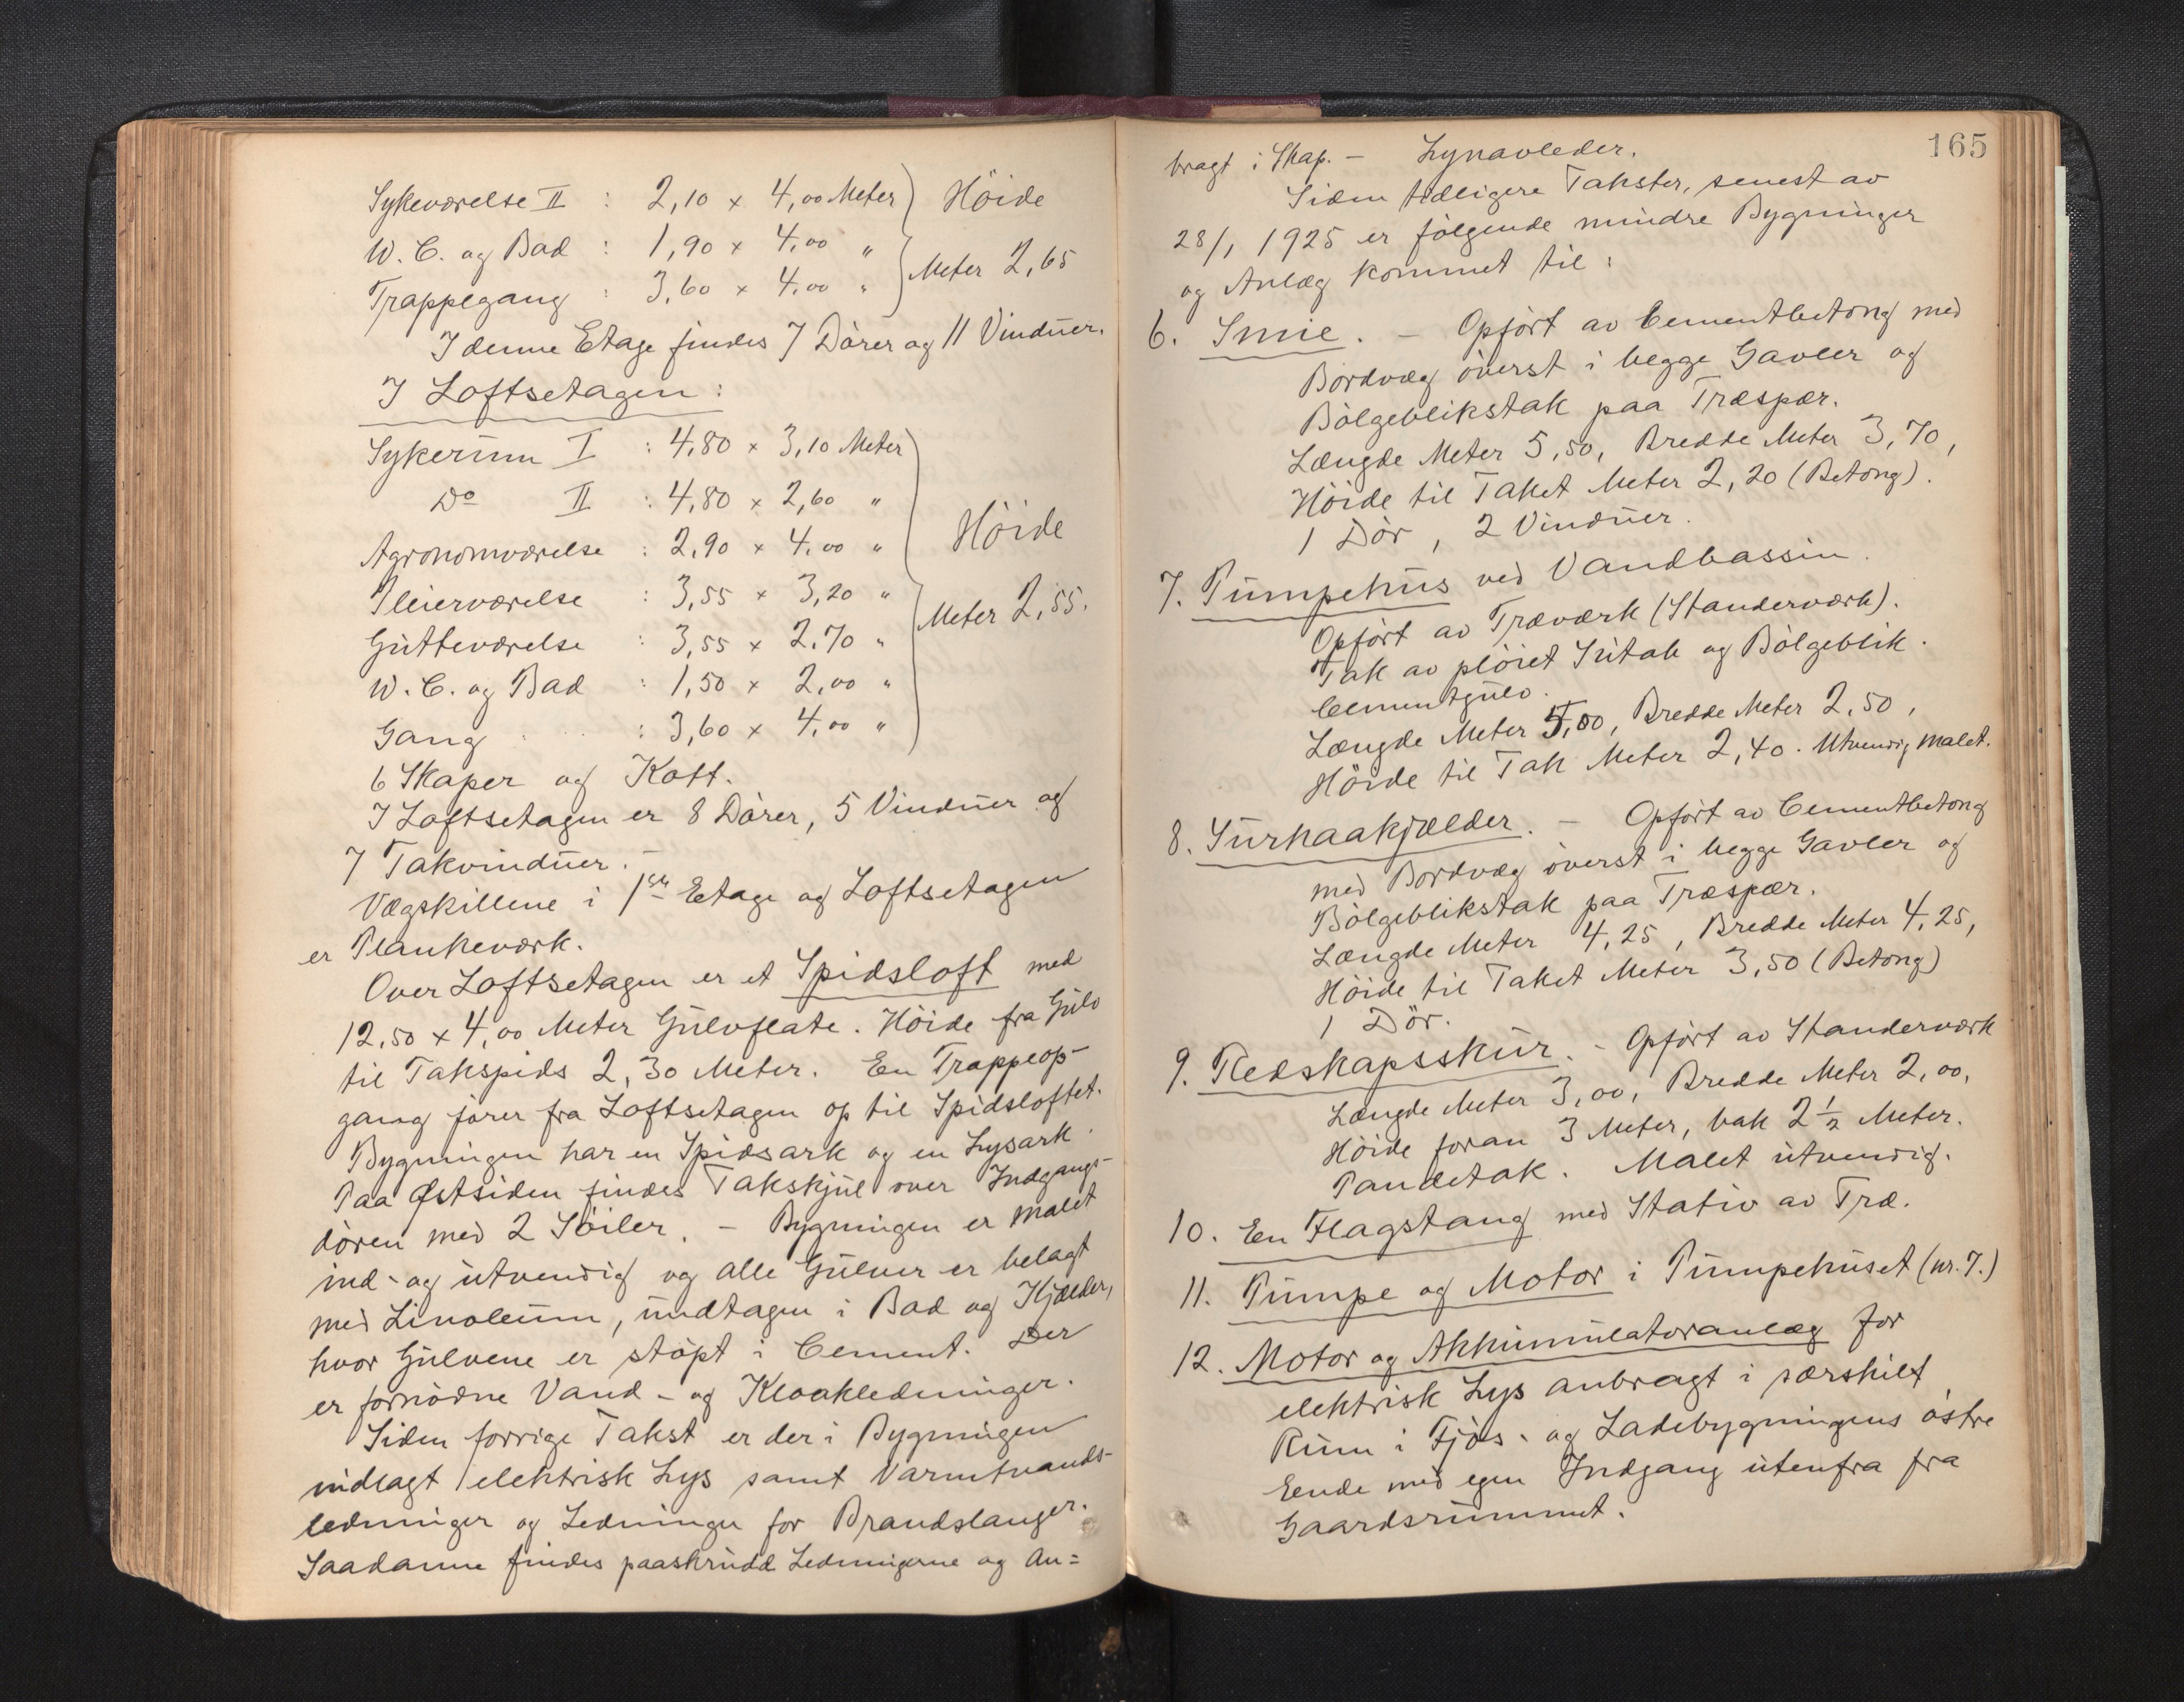 Sykeværelse II : 2,10 x 4,00 Meter) Höide
W. C. og Bad : 1,90 x 4,00 "
Trappegang : 3,60 x 4,00 " Meter 2,65
I denne Etage findes 7 Dörer og 11 Vinduer.
I Loftsetagen :
Sykerum I : 4,80 x 3,10 Meter
Do II : 4,80 x 2,60 "
Agronomværelse : 2,90 x 4,00 " Höide
Pleierværelse : 3,55 x 3,20 "
Gutteværelse : 3,55 x 2,70 " Meter 2,55.
W. C. og Bad : 1,50 x 2,00 "
Gang : 3,60 x 4,00 "
6 Skaper og Kott.
I Loftsetagen er 8 Dörer, 5 Vinduer og
7 Takvinduer. –
Vægskillene i 1ste Etage og Loftsetagen
er Plankeværk.
Over Loftsetagen er et Spidsloft med
12,50 x 4,00 Meter Gulvflate. Höide fra Gulv
til Takspids 2,30 Meter. En Trappeop-
gang förer fra Loftsetagen op til Spidsloftet.
Bygningen har en Spidsark og en Lysark.
Paa Østsiden findes Takskjul over Indgangs-
dören med 2 Söiler. – Bygningen er malet
ind- og utvendig og alle Gulver er belagt
med Linoleum, undtagen i Bad og Kjælder,
hvor Gulvene er stöpt i Cement. Der
er fornödne Vand- og Kloakledninger.
Siden forrige Takst er der i Bygningen
indlagt elektrisk Lys samt Varmtvands-
ledninger og Ledninger for Brandslanger.
Saadanne findes paaskrudd Ledningerne og an=
165
bragt i Skap. – Lynavleder.
Siden tidligere Takster, senest av
28/1 1925 er fölgende mindre Bygninger
og Anlæg kommet til :
6. Smie. – Opfört av Cementbetong med
Bordvæg överst i begge Gavler og
Bölgeblikstak paa Træspær.
Længde Meter 5,50, Bredde Meter 3,70,
Höide til Taket Meter 2,20 (Betong).
1 Dör, 2 Vinduer.
7. Pumpehus ved Vandbassin.
Opfört av Træværk (Standerværk).
Tak av plöiet Sutak og Bölgeblik.
Cementgulv.
Længde Meter 5,00, Bredde Meter 2,50,
Höide til Tak Meter 2,40. Utvendig malet.
8. Surhaakjælder. – Opfört av Cementbetong
med Bordvæg överst i begge Gavler og
Bölgeblikstak paa Træspær.
Længde Meter 4,25, Bredde Meter 4,25,
Höide til Taket Meter 3,50 (Betong)
1 Dör.
9. Redskapsskur. – Opfört av Standerværk
Længde Meter 3,00, Bredde Meter 2,00,
Höide foran 3 Meter, bak 2 1/2 Meter.
Pandetak. Malet utvendig.
10. En Flagstang med Stativ av Træ.
11. Pumpe og Motor i Pumpehuset (nr. 7.)
12. Motor og Akkumulatoranlæg for
elektrisk Lys anbragt i særskilt
Rum i Fjös- og Ladebygningens östre
Ende med egen Indgang utenfra fra
Gaardsrummet.